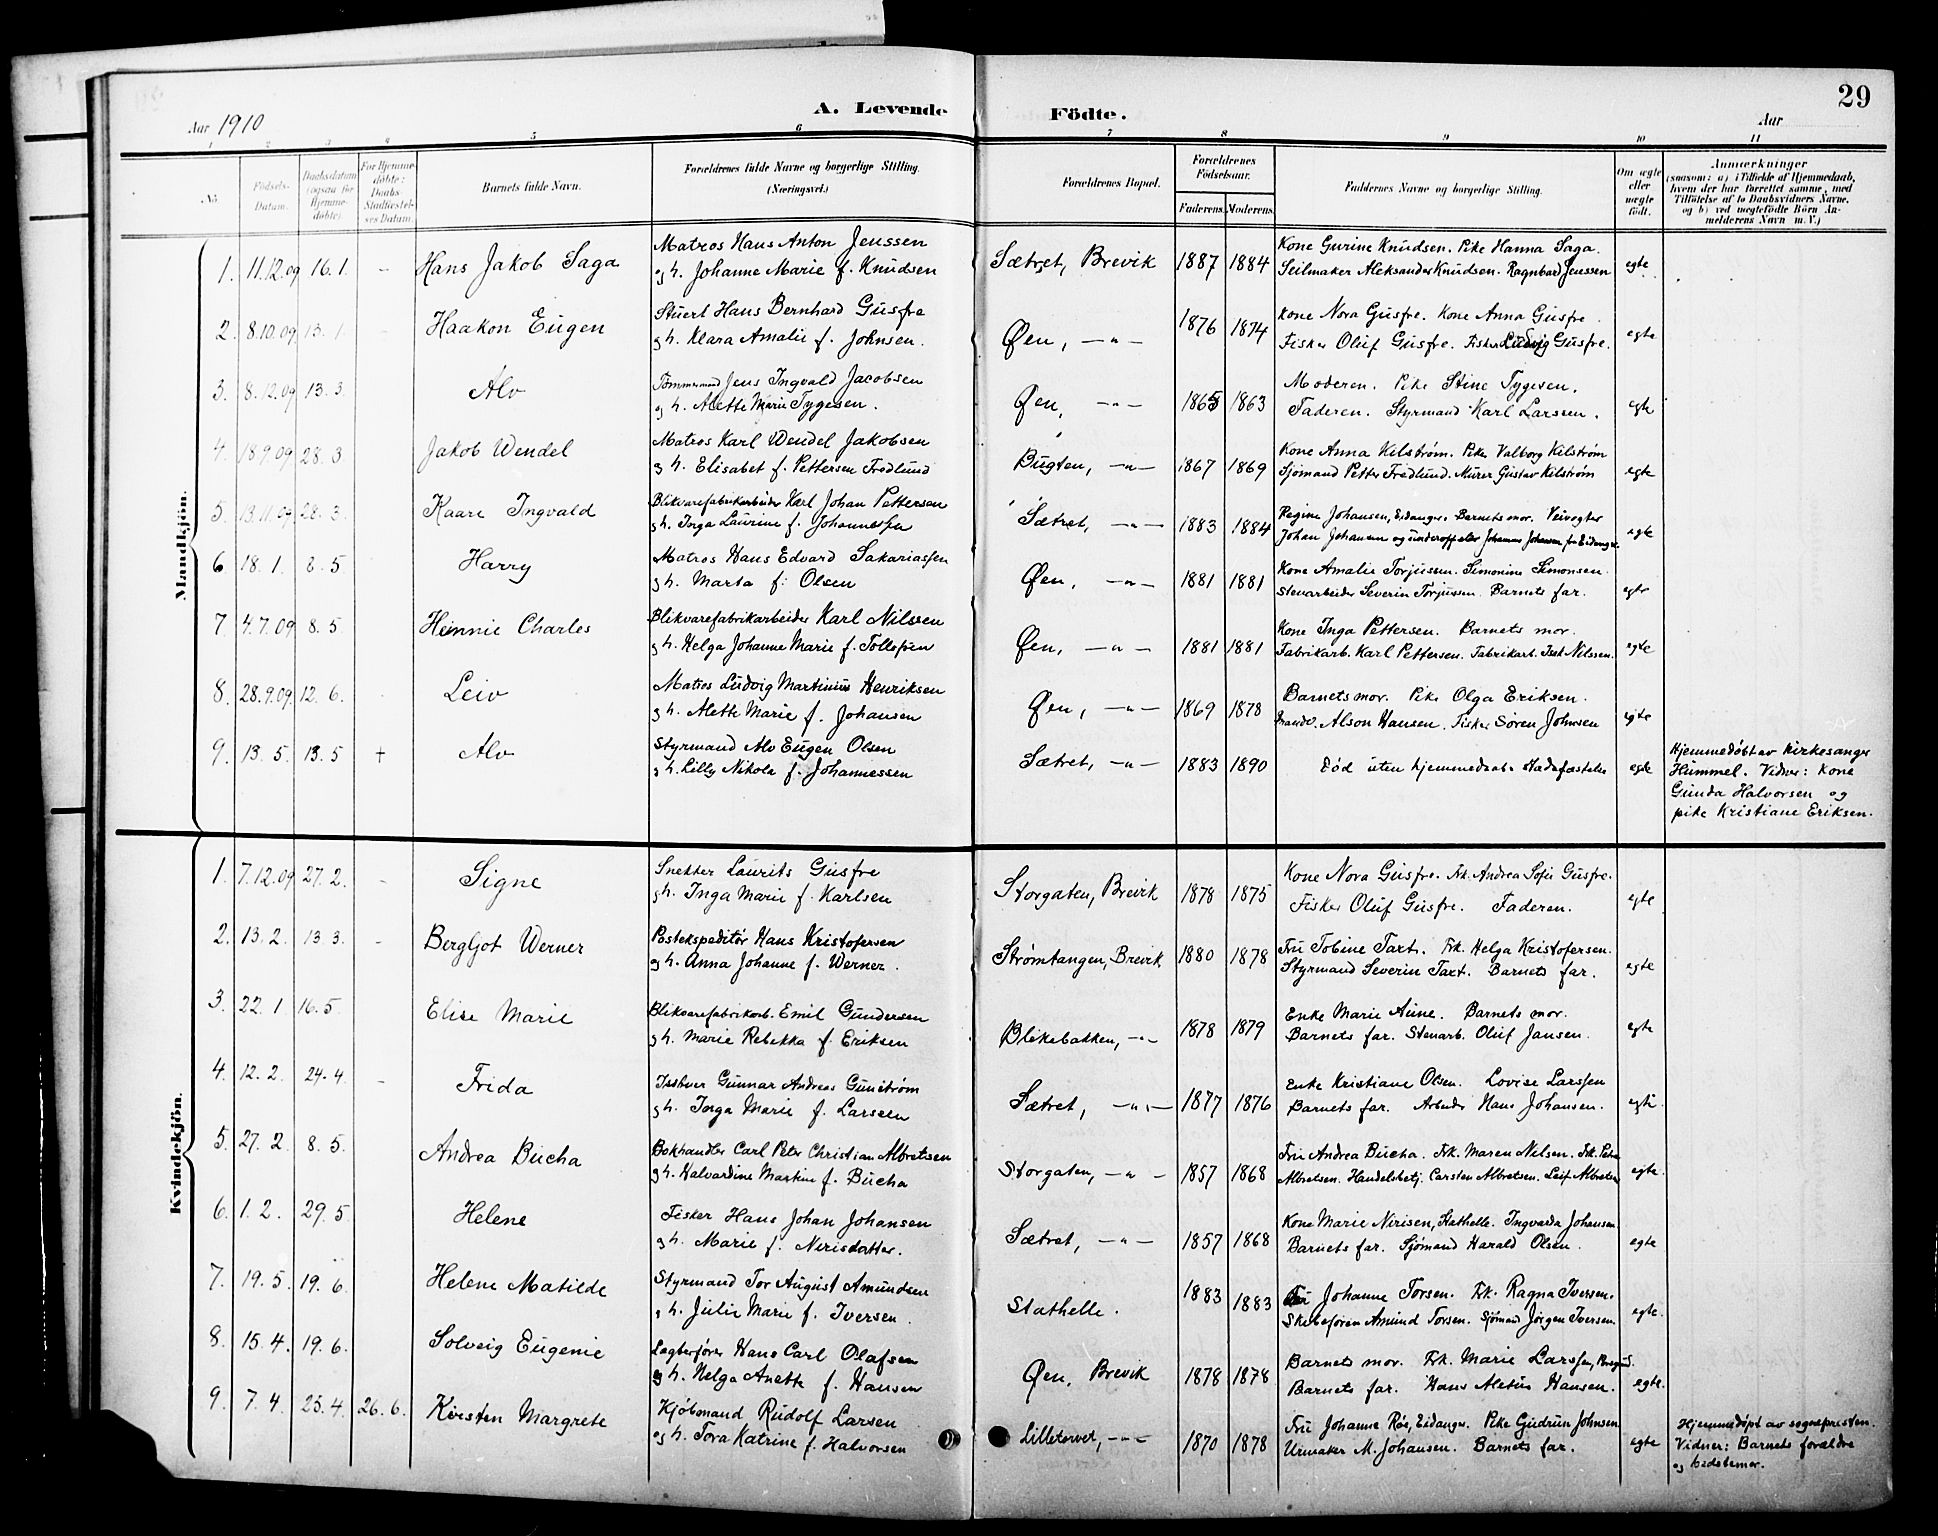 29
Aar 1910
A. Levende Födte.
Aar
1 2 3 4 5 6 7 8 9 10 11
No. Födsels-Datum. Daabsdatum (ogsaa for Hjemme-döbte). For Hjemme-döbte: Daabs-Stadfæstel-ses Datum. Barnets fulde Navn. Forældrenes fulde Navne og borgerlige Stilling. (Næringsvei.) Forældrenes Bopæl. Forældrenes Födselsaar. Faderens. Moderens. Faddernes Navne og borgerlige Stilling. Om ægte eller uægte födt. Anmærkninger (saasom: a) i Tilfælde af Hjemmedaab, hvem der har forrettet samme, med Tilföielse af to Daabsvidners Navne, og b) ved uægtefödte Börn An-melderens Navn m. V.)
Mandkjön.
1. 11.12.09 16.1. - Hans Jakob Saga Matros Hans Anton Jenssen
og h. Johanne Marie f. Knudsen Sætret, Brevik 1887 1884 Kone Gurine Knudsen. Pike Hanna Saga.
Seilmaker Aleksander Knudsen. Ragnbad Jenssen egte
2. 8.10.09 13.1. - Haakon Eugen Stuert Hans Bernhard Gusfre
g h. Klara Amalie f. Johnsen. Øen, -"- 1876 1874 Kone Nora Gusfre. Kone Anna Gusfre.
Fisker Oluf Gusfre. Fisker Ludvig Gusfre. egte
3. 8.12.09 13.3. Alv Tømmermand Jens Ingvald Jacobsen
og h. Alette Marie Tygesen. Øen, -"- 1865 1863 Moderen. Pike Stine Tygesen.
Faderen. Styrmand Karl Larssen. egte
4. 18.9.09 28.3. Jakob Wendel Matros Karl Wendel Jakobsen
g h. Elisabet f. Pettersen Fredlund Bugten, -"- 1867 1869 Kone Anna Kilstrøm. Pike Valborg Kilstrøm
Sjømand Petter Fredlund. Murer Gustav Kilstrøm egte
5. 13.11.09 28.3. Kaare Ingvald Blikvarefabrikarbeider Karl Johan Pettersen
g h. Inga Laurine f. Johannesen Sætret, -"- 1883 1884 Regine Johansen, Eidanger. Barnets mor. Veivogter
Johan Johansen og underoff. elev Johannes Johansen fra Eidanger egte
6 18.1. 8.5 Harry Matros Hans Edvard Sakariassen
g h. Marta f. Olsen Øen, -"- 1881 1881 Kone Amalie Torjussen. Simonine Simonsen.
Stenarbeider Severin Torjussen. Barnets far. egte
7. 4.7.09 8.5. Hennie Charles Blikvarefabrikarbeider Karl Nilssen
g h. Helga Johanne Marie f. Tollefsen Øen, -"- 1881 1881 Kone Inga Pettersen. Barnets mor.
Fabrikarb. Karl Pettersen. Fabrikarb. Isak Nilssen. egte
8. 28.9.09 12.6. Leiv Matros Ludvig Martinius Henriksen
g h. Alette Marie f. Johansen Øen, -"- 1869 1878 Barnets mor. Pike Olga Eriksen.
Alson Hansen. Fisker Søren Johnsen egte
9. 13.5. 13.5 + Alv Styrmand Alv Eugen Olsen
g h. Lilly Nikola f. Johannessen Sætret, -"- 1883 1890 Død uten hjemmedaabs stadfæstelse egte Hjemmedøbt av kirkesanger
Hummel. Vidner: Kone
Gunda Halvorsen og
pike Kristiane Eriksen.
Kvindekjön.
1. 7.12.09 27.2. - Signe Snekker Laurits Gusfre
g h. Inga Marie f. Karlsen Storgaten, Brevik 1878 1875 Kone Nora Gusfre. Frk. Andrea Sofie Gusfre.
Fisker Oluf Gusfre. Faderen. egte
2. 13.2. 13.3. - Bergljot Werner Postekspeditør Hans Kristofersen
og h. Anna Johanne f. Werner. Strømtangen, Brevik 1880 1878 Fru Tobine Taxt. Frk. Helga Kristofersen.
Styrmand Severin Taxt. Barnets far. egte
3. 22.1. 16.5. Elise Marie Blikvarefabrikarb. Emil Gundersen
g h. Marie Rebekka f. Eriksen Blikebakken, -"- 1878 1879 Enke Marie Aune. Barnets mor.
Barnets far. Stenarb. Oluf Jansen. egte
4. 12.2. 24.4. - Frida Gunnar Andreas Gunstrøm
g h. Inga Marie f. Larssen Sætret, -"- 1877 1876 Enke Kristiane Olsen. Lovise Larssen
Barnets far. Arbeider Hans Johansen. egte.
5. 27.2. 8.5. Andrea Bucha Bokhandler Carl Peter Christian Albretsen
g h. Halvardine Martine f. Bucha Storgaten, -"- 1857 1868 Fru Andrea Bucha. Frk. Maren Nilsen. Frk. Petra
Albretsen. Handelsbetj. Carsten Albretsen. Leif Albretsen egte.
6. 1.2. 29.5 Helene Fisker Hans Johan Johansen
g h. Marie f. Nirisdatter. Sætret, -"- 1857 1868 Kone Marie Nirisen, Stathelle. Ingvarda Johansen.
Barnets far. Sjømand Harald Olsen. egte
7. 19.5. 19.6. Helene Matilde Styrmand Tor August Amundsen
g h. Julie Marie f. Iversen. Stathelle. 1883 1883 Fru Johanne Torsen. Frk. Ragna Iversen.
Skibsfører Amund Torsen. Sjømand Jørgen Iversen. egte.
8. 15.4. 19.6. Solveig Eugenie Hans Carl Olafsen
og h. Helga Anette f. Hansen Øen, Brevik 1878 1878 Barnets mor. Frk. Marie Larssen,
Barnets far. Hans Aletus Hansen. egte.
9. 7.4. 25.4. 26.6. Kirsten Margrete Kjøbmand Rudolf Larsen
og h. Tora Katrine f. Halvorsen Lilletorvet, -"- 1870 1878 Fru Johanne Røe, Eidanger. Pike Gudrun Johnsen
Urmaker M. Johansen. Barnets far. egte Hjemmedøpt av sogneprosten.
Vidner: Barnets forældre
og bedstemor.